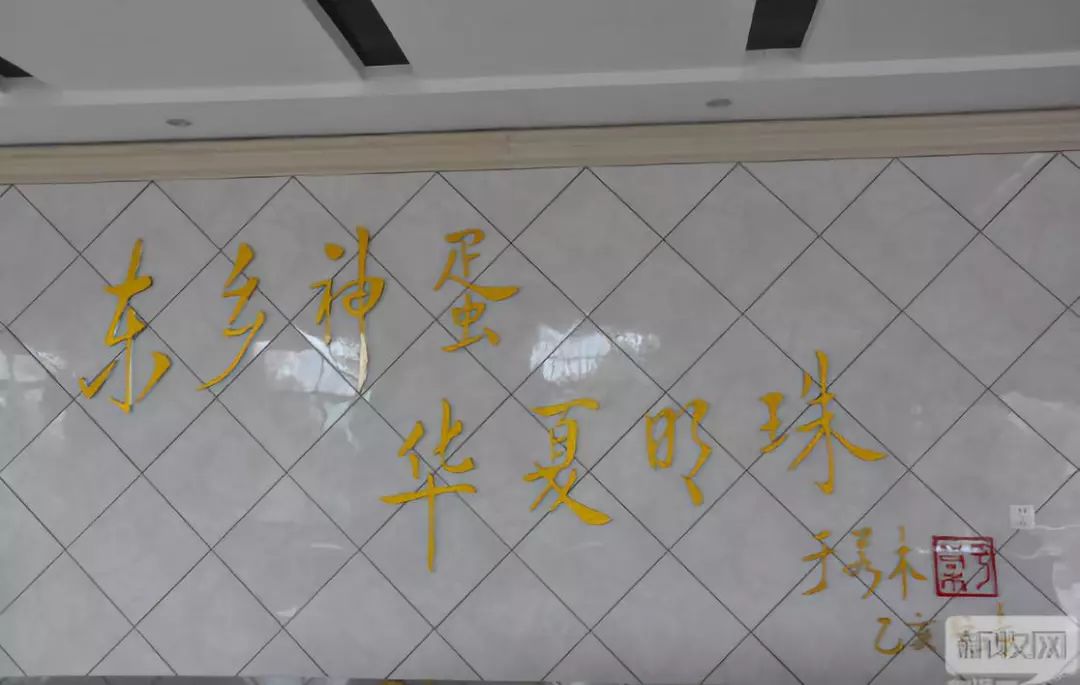 东乡神蛋
华夏明珠
于若木
乙亥
新牧网